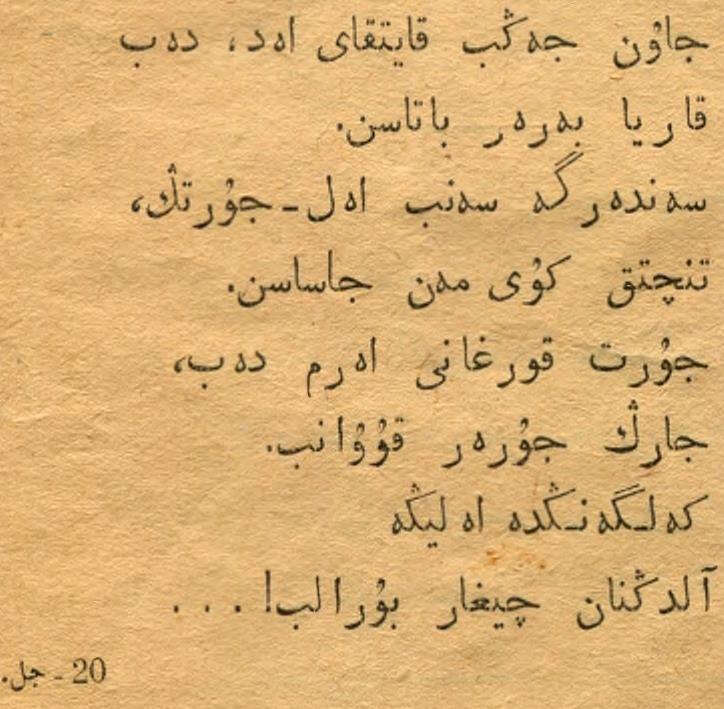 جاۋن جەڭب قايتقاى اەد، دەب
قاريا بەرەر باتاسن.
سەندەرگە سەنب اەل-جۇرتڭ،
تنچتق كۇى مەن جاساسن.
جۇرت قورغانى اەرم دەب،
جارڭ جۇرەر قۇۋانب.
كەلگەنڭدە اەليڭە
آلدڭنان چيغار بۇرالب!...
20 - جل.